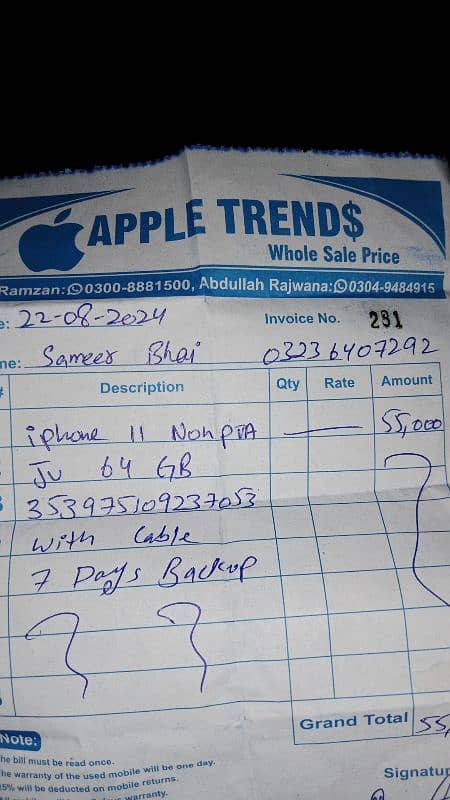 APPLE TREND$
Whole Sale Price
Ramzan: 0300-8881500, Abdullah Rajwana: 0304-9484915
e: 22-08-2024 Invoice No. 281
me: Sameer Bhai 03236407292
# Description Qty Rate Amount
iphone 11 Non PTA 55,000
Jv 64 GB
353975109237053
with Cable
7 Days Backup
Grand Total 55,
Note:
he bill must be read once.
he warranty of the used mobile will be one day.
25% will be deducted on mobile returns.
warranty.
Signatur